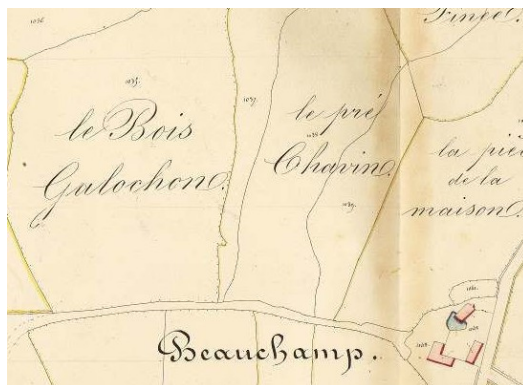 1035.
le Bois
Galochon.
1037.
le pré
Chavin.
1039.
la pièc
de la
maison.
Beauchamp.